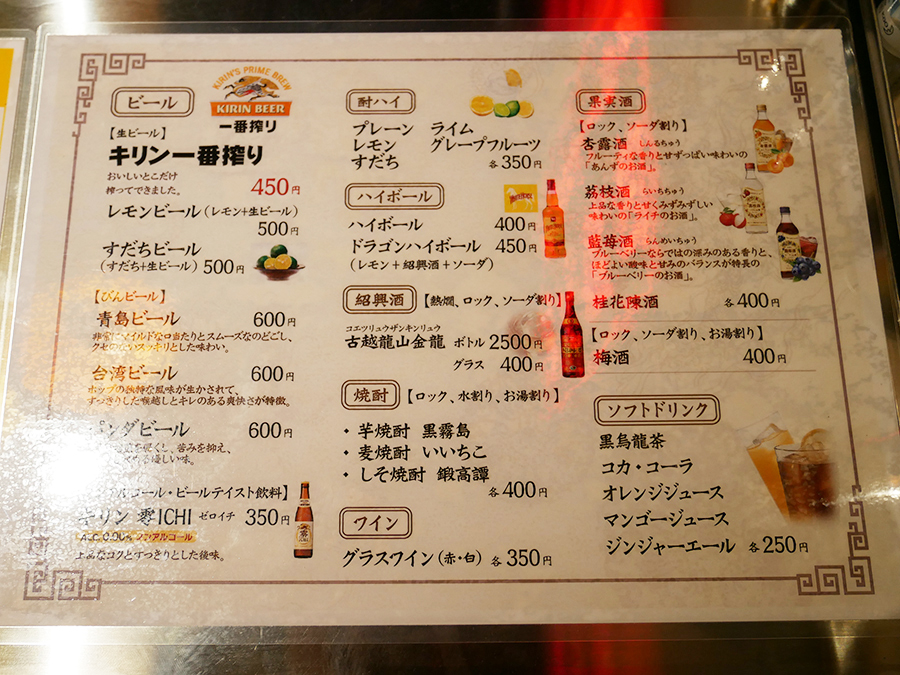 ビール
KIRIN'S PRIME BREW
KIRIN BEER
一番搾り
【生ビール】
キリン一番搾り
おいしいとこだけ
搾ってできました。
450円
レモンビール（レモン+生ビール）
500円
すだちビール
（すだち+生ビール） 500円
【びんビール】
青島ビール 600円
非常にマイルドな口当たりとスムーズなのどごし、
クセのないスッキリとした味わい。
台湾ビール 600円
ホップの独特な風味が生かされて、
すっきりした喉越しとキレのある爽快さが特徴。
パンダビール 600円
苦みを抑え、
優しい味。
アルコール・ビールテイスト飲料】
キリン 零ICHI ゼロイチ 350円
ALC.0.00% ノンアルコール
上品なコクとすっきりとした後味。
酎ハイ
プレーン ライム
レモン グレープフルーツ
すだち 各350円
ハイボール
ハイボール 400円
ドラゴンハイボール 450円
（レモン＋紹興酒＋ソーダ）
紹興酒 【熱燗、ロック、ソーダ割り】
コエツリュウザンキンリュウ
古越龍山金龍 ボトル 2500円
グラス 400円
焼酎 【ロック、水割り、お湯割り】
・芋焼酎 黒霧島
・麦焼酎 いいちこ
・しそ焼酎 鍛高譚
各400円
ワイン
グラスワイン（赤・白） 各350円
果実酒
【ロック、ソーダ割り】
杏露酒 しんるちゅう
フルーティな香りと甘ずっぱい味わいの
「あんずのお酒」。
荔枝酒 らいちちゅう
上品な香りと甘くみずみずしい
味わいの「ライチのお酒」。
藍苺酒 らんめいちゅう
ブルーベリーならではの深みのある香りと、
ほどよい酸味と甘みのバランスが特長の
「ブルーベリーのお酒」。
桂花陳酒 各400円
【ロック、ソーダ割り、お湯割り】
梅酒 400円
ソフトドリンク
黒烏龍茶
コカ・コーラ
オレンジジュース
マンゴージュース
ジンジャーエール 各250円